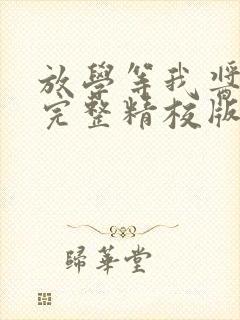 放學等我 醬
完整精校版
歸華堂